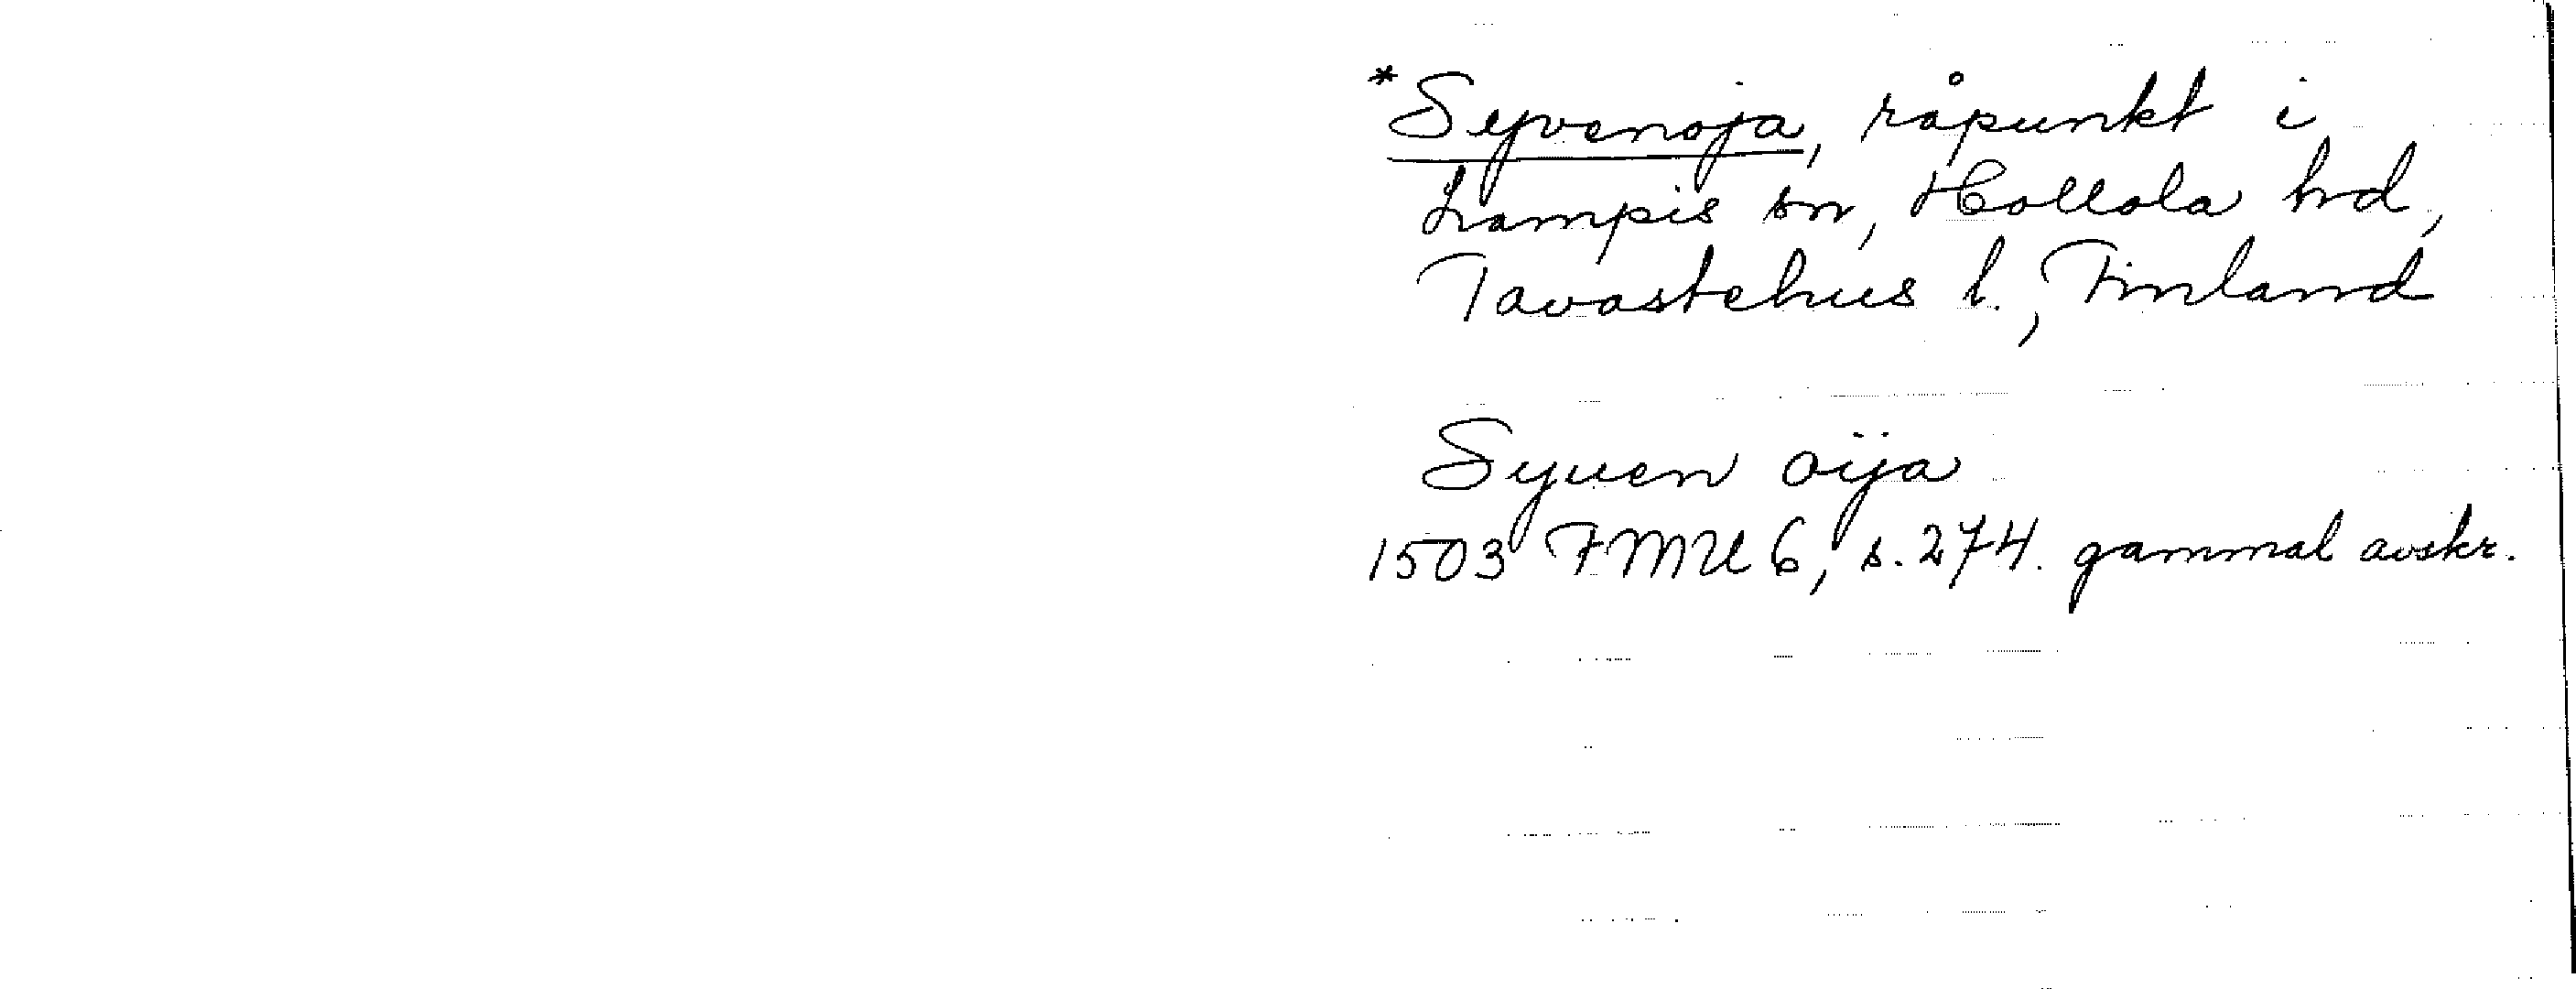 *Syvenoja, råpunkt i
Lampis sn, Hollola hd,
Tavastehus l., Finland
Syuen oija
1503 FMU 6, s. 274. gammal avskr.